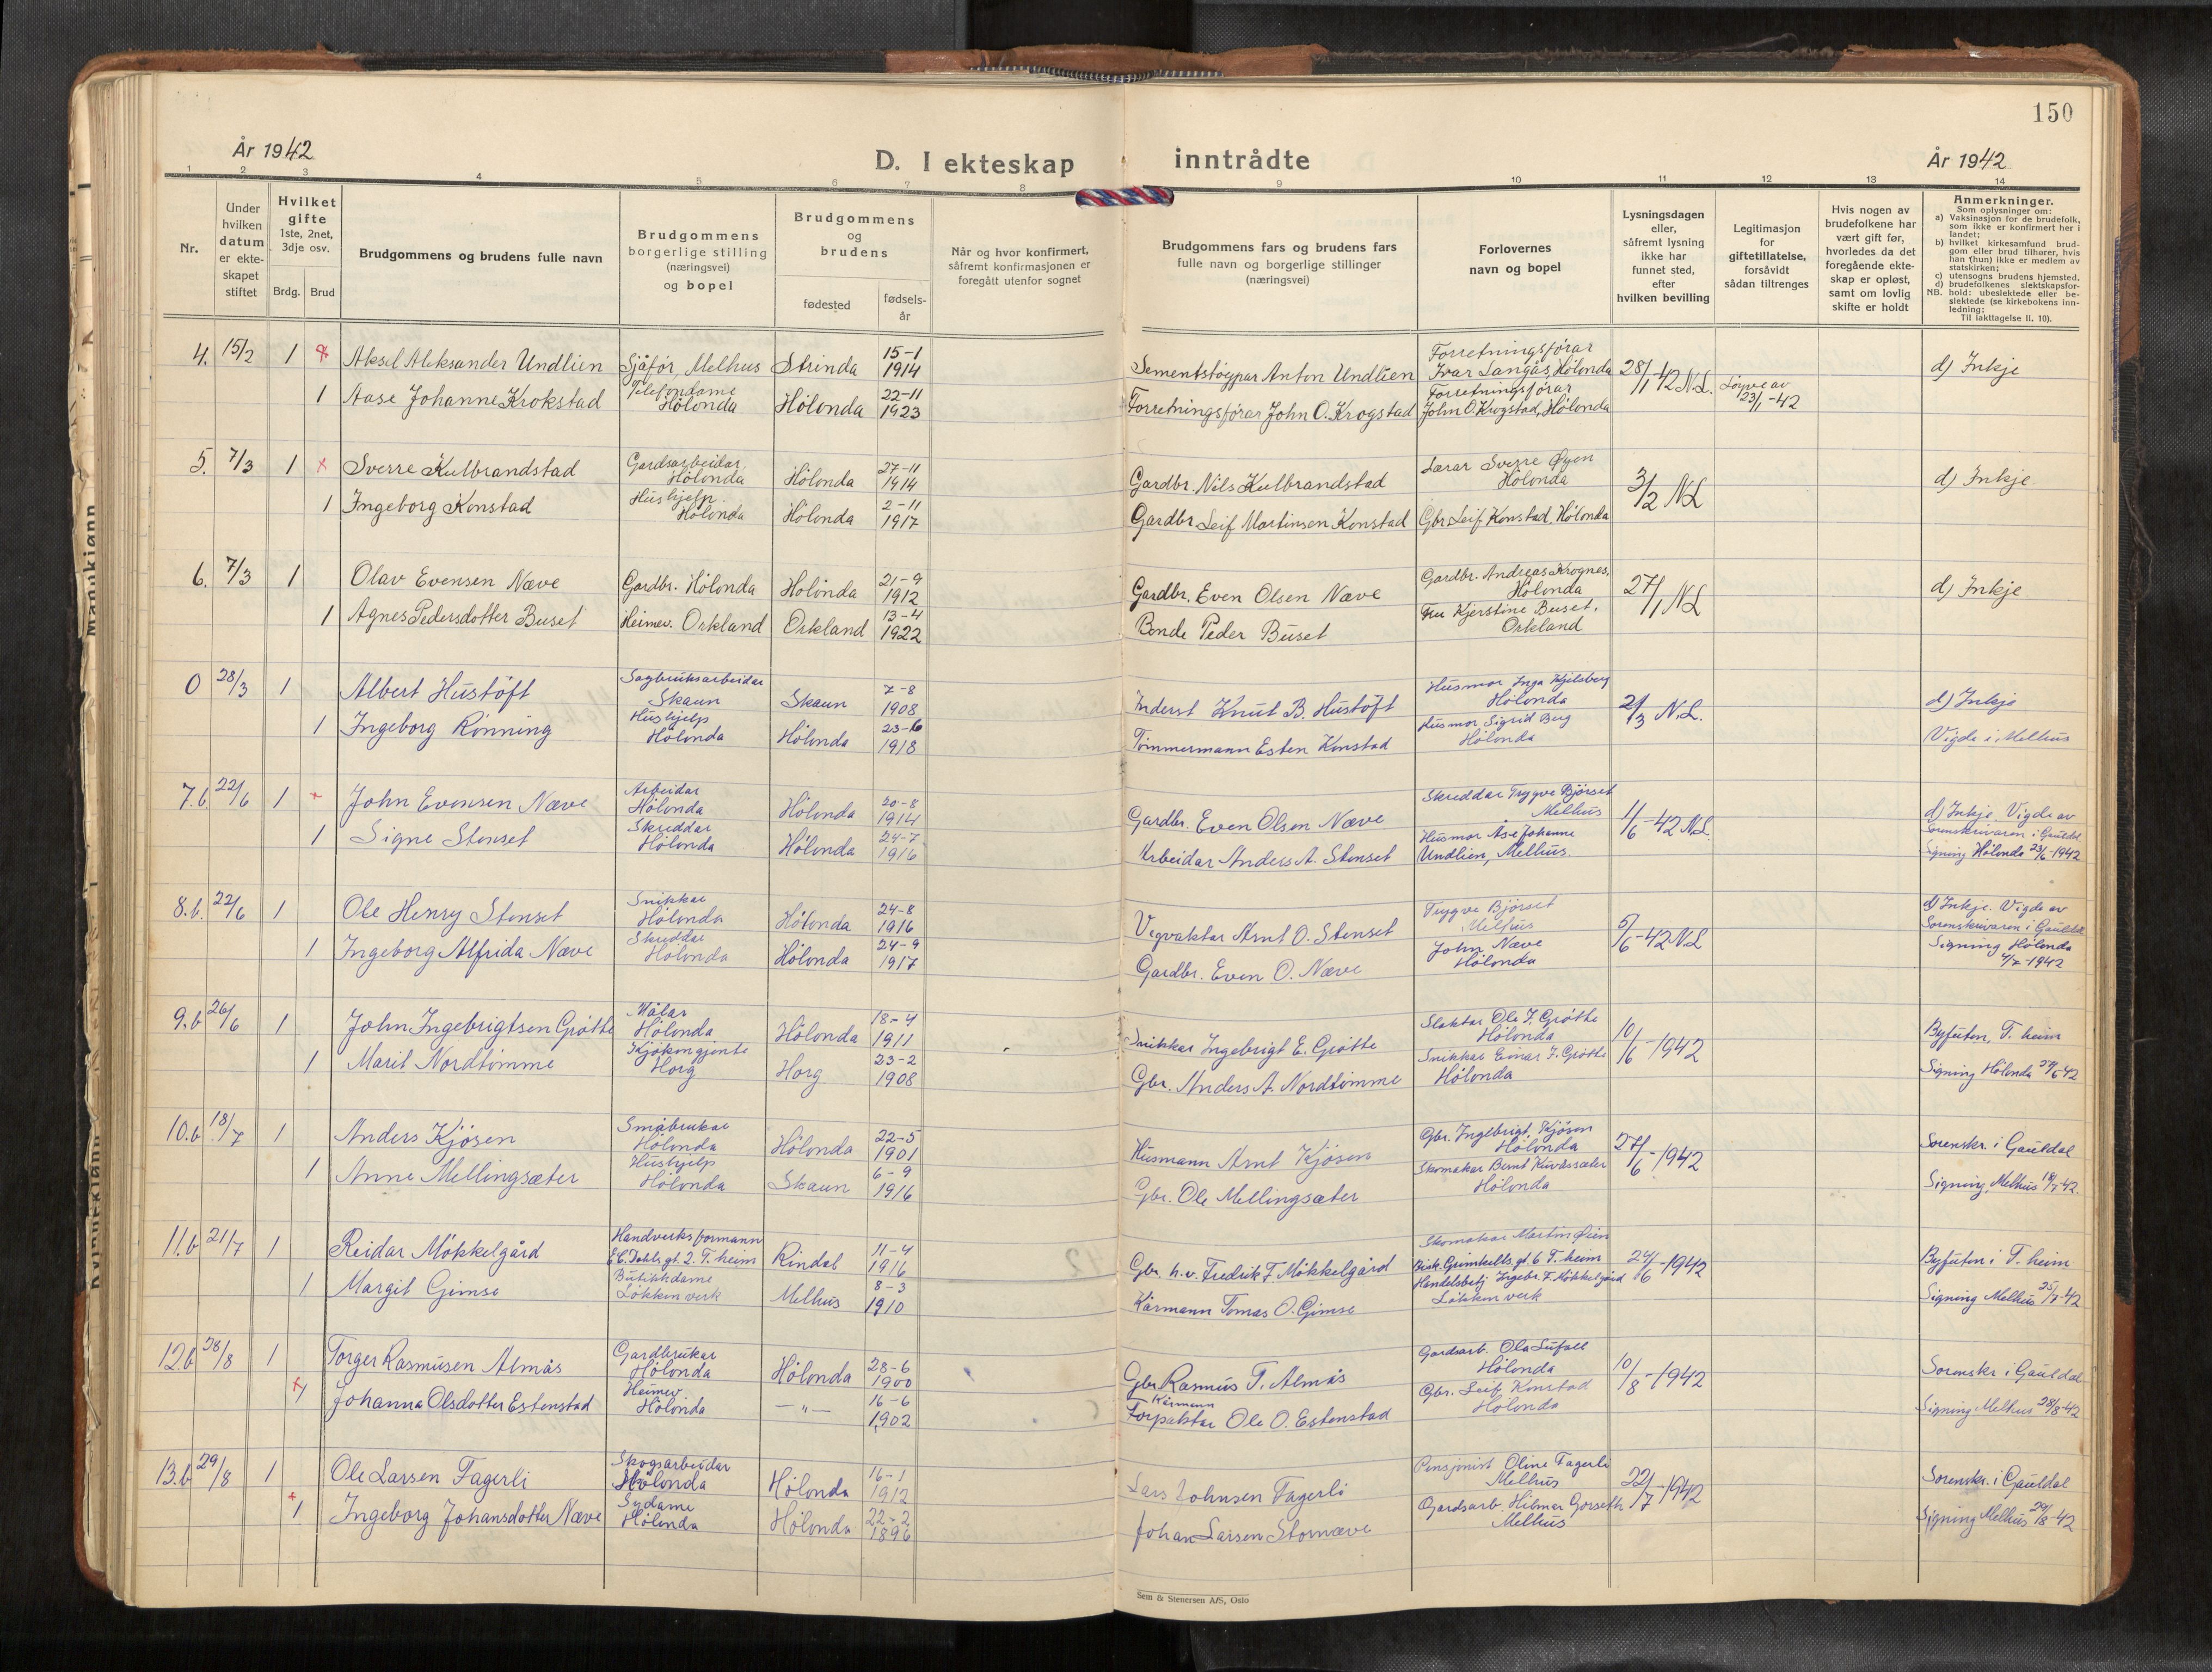 150
År 1942
D. I ekteskap inntrådte
År 1942
1 2 3 4 5 6 7 8 9 10 11 12 13 14
Nr.
Under hvilken datum er ekte-skapet stiftet
Hvilket gifte 1ste, 2net, 3dje osv.
Brdg. Brud
Brudgommens og brudens fulle navn
Brudgommens borgerlige stilling (næringsvei) og bopel
Brudgommens og brudens
fødested
fødsels-år
Når og hvor konfirmert, såfremt konfirmasjonen er foregått utenfor sognet
Brudgommens fars og brudens fars fulle navn og borgerlige stillinger (næringsvei)
Forlovernes navn og bopel
Lysningsdagen eller, såfremt lysning ikke har funnet sted, efter hvilken bevilling
Legitimasjon for giftetillatelse, forsåvidt sådan tiltrenges
Hvis nogen av brudefolkene har vært gift før, hvorledes da det foregående ekte-skap er opløst, samt om lovlig skifte er holdt
Anmerkninger.
Som oplysninger om:
a) Vaksinasjon for de brudefolk, som ikke er konfirmert her i landet;
b) hvilket kirkesamfund brud-gom eller brud tilhører, hvis han (hun) ikke er medlem av statskirken;
c) utensogns brudens hjemsted.
d) brudefolkenes slektskapsfor-hold: ubeslektede eller be-slektede (se kirkebokens inn-ledning;
NB.
Til iakttagelse II. 10).
4. 15/2 1 Aksel Aleksander Undlien Sjåfør, Melhus Strinda 15-1 1914 Sementstøypar Anton Undlien Forretningsførar Ivar Langås, Hölonda 28/1-42 N.L. Løyve av 23/1-42 d) Inkje
1 Aase Johanne Krokstad Telefondame Hölonda Hölonda 22-11 1923 Forretningsförar John O. Krogstad Forretningsförar John O. Krogstad, Hölonda
5. 7/3 1 Sverre Kulbrandstad Gardsarbeidar, Hölonda Hölonda 27-11 1914 Gardbr. Nils Kulbrandstad Lærar Sverre Øyen Hölonda 3/2 N.L d) Inkje
1 Ingeborg Konstad Hushjelp. Hölonda Hölonda 2-11 1917 Gardbr. Leif Martinsen Konstad Gbr. Leif Konstad, Hölonda
6. 7/3 1 Olav Evensen Næve Gardbr. Hölonda Hölonda 21-9 1912 Gardbr. Even Olsen Næve Gardbr. Andreas Krognes, Hölonda 27/1 N.L d) Inkje
1 Agnes Pedersdotter Buset Heimev. Orkland Orkland 13-4 1922 Bonde Peder Buset Fru Kjerstine Buset, Orkland
0 28/3 1 Albert Hustöft Sagbruksarbeidar Skaun Skaun 7-8 1908 Inderst Knut B. Hustöft Husmor Inga Kjelsberg Hölonda 2/3 N.L. d) Inkje
1 Ingeborg Rönning Hushjelp Hölonda Hölonda 23-6 1918 Tömmermann Esten Konstad Husmor Sigrid Berg Hölonda Vigde i Melhus
7.b 22/6 1 John Evensen Næve Arbeidar Hölonda Hölonda 20-8 1914 Gardbr. Even Olsen Næve Skreddar Trygve Bjørset Melhus 11/6-42 N.L. d) Inkje. Vigde av Sorenskrivaren i Gauldal
1 Signe Stenset Skreddar Hölonda Hölonda 24-7 1916 Arbeidar Anders A. Stenset Husmor Åse Johanne Undlien, Melhus. Signing Hölonda 23/6-1942
8.b. 22/6 1 Ole Henry Stenset Snikkar Hölonda Hölonda 24-8 1916 Vegvaktar Arnt O. Stenset Trygve Bjørset Melhus 5/6-42 N.L d) Inkje. Vigde av Sorenskrivaren i Gauldal
1 Ingeborg Alfrida Næve Skreddar Hölonda Hölonda 24-9 1917 Gardbr. Even O. Næve John Næve Hölonda Signing Hölonda 4/7-1942
9.b 26/6 1 John Ingebrigtsen Grøtte Målar Hölonda Hölonda 18-4 1911 Snikkar Ingebrigt E. Grøtte Slaktar Ole J. Grøtte Hölonda 10/6-1942 Byfuten, T. heim
1 Marit Nordtömme Kjökengjente Horg Horg 23-2 1908 Gbr. Anders A. Nordtömme Snikkar Einar J. Grøtte Hölonda Signing Hölonda
10.b 18/7 1 Anders Kjösen Småbrukar Hölonda Hölonda 22-5 1901 Husmann Arnt Kjösen Gbr. Ingebrigt Kjösen Hölonda 27/6-1942 Sorenskr. i Gauldal
1 Anne Mellingsæter Hushjelp Hölonda Skaun 6-9 1916 Gbr. Ole Mellingsæter Skomakar Bernt Kuvåssæter Hölonda Signing, Melhus 18/7-42.
11.b 21/7 1 Reidar Mökkelgård Handverksformann E.C. Dahls gt. 2. T. heim Rindal 11-4 1916 Gbr. h.v. Fredrik F Mökkelgård Skomakar Martin Øien Bisk. Grimkells gt 6 T. heim 24/6-1942 Byfuten i T. heim
1 Margit Gimse Butikkdame Lökken verk Melhus 8-3 1910 Kårmann Tomas O. Gimse Handelsbetj Ingebr. F. Mökkelgård Lökken verk Signing Melhus 25/7-42
12.b 28/8 1 Torger Rasmusen Almås Gardbrukar Hölonda Hölonda 28-6 1900 Gbr Rasmus T. Almås Gardsarb. Ola Lufall Hölonda 10/8-1942 Sorenskr i Gauldal
1 Johanna Olsdotter Estenstad Heimev Hölonda —"— 16-6 1902 Kårmann Ole O. Estenstad Gbr. Leif Konstad Hölonda Signing Melhus 28/8-42
13.b 29/8 1 Ole Larsen Fagerli Skogsarbeidar Hölonda Hölonda 16-1 1912 Lars Johnsen Fagerli Pensjonist Oline Fagerli Melhus 22/7-1942 Sorenskr. i Gauldal
1 Ingeborg Johansdotter Næve Sydame Hölonda Hölonda 22-2 1896 Johan Larsen Stornæve Gardsarb. Hilmar Gorseth Melhus Signing Melhus 29/8-42
Sem & Stenersen A/S, Oslo